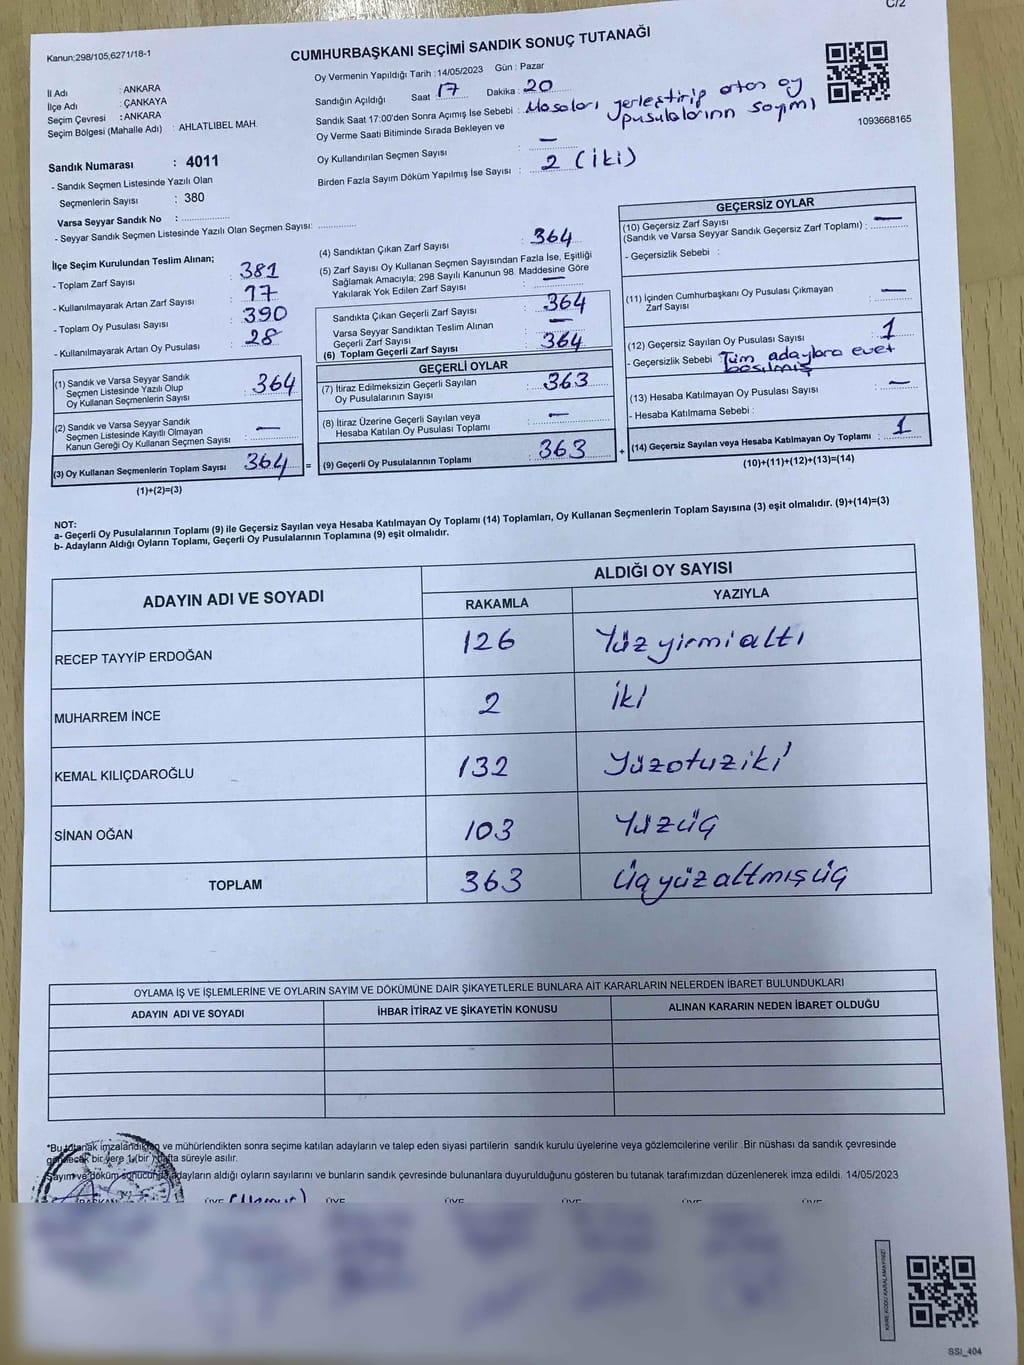 C/2
Kanun;298/105;6271/18-1
CUMHURBAŞKANI SEÇİMİ SANDIK SONUÇ TUTANAĞI
İl Adı : ANKARA
İlçe Adı : ÇANKAYA
Seçim Çevresi : ANKARA
Seçim Bölgesi (Mahalle Adı) : AHLATLIBEL MAH.
Oy Vermenin Yapıldığı Tarih :14/05/2023 Gün : Pazar
Sandığın Açıldığı Saat 17 Dakika : 20
Sandık Saat 17:00'den Sonra Açımış İse Sebebi : Masaları yerleştirip artan oy
pusulalarının sayımı
Oy Verme Saati Bitiminde Sırada Bekleyen ve
Oy Kullandırılan Seçmen Sayısı : —
Birden Fazla Sayım Döküm Yapılmış İse Sayısı : 2 (iki)
1093668165
Sandık Numarası : 4011
- Sandık Seçmen Listesinde Yazılı Olan
Seçmenlerin Sayısı : 380
Varsa Seyyar Sandık No :
- Seyyar Sandık Seçmen Listesinde Yazılı Olan Seçmen Sayısı:
İlçe Seçim Kurulundan Teslim Alınan;
- Toplam Zarf Sayısı : 381
- Kullanılmayarak Artan Zarf Sayısı : 17
- Toplam Oy Pusulası Sayısı : 390
- Kullanılmayarak Artan Oy Pusulası : 28
(1) Sandık ve Varsa Seyyar Sandık
Seçmen Listesinde Yazılı Olup
Oy Kullanan Seçmenlerin Sayısı : 364
(2) Sandık ve Varsa Seyyar Sandık
Seçmen Listesinde Kayıtlı Olmayan
Kanun Gereği Oy Kullanan Seçmen Sayısı : —
(3) Oy Kullanan Seçmenlerin Toplam Sayısı 364 =
(1)+(2)=(3)
(4) Sandıktan Çıkan Zarf Sayısı : 364
(5) Zarf Sayısı Oy Kullanan Seçmen Sayısından Fazla İse, Eşitliği
Sağlamak Amacıyla; 298 Sayılı Kanunun 98. Maddesine Göre
Yakılarak Yok Edilen Zarf Sayısı : —
Sandıkta Çıkan Geçerli Zarf Sayısı : 364
Varsa Seyyar Sandıktan Teslim Alınan
Geçerli Zarf Sayısı : —
(6) Toplam Geçerli Zarf Sayısı : 364
GEÇERLİ OYLAR
(7) İtiraz Edilmeksizin Geçerli Sayılan
Oy Pusulalarının Sayısı : 363
(8) İtiraz Üzerine Geçerli Sayılan veya
Hesaba Katılan Oy Pusulası Toplamı : —
(9) Geçerli Oy Pusulalarının Toplamı : 363 +
GEÇERSİZ OYLAR
(10) Geçersiz Zarf Sayısı
(Sandık ve Varsa Seyyar Sandık Geçersiz Zarf Toplamı) : —
- Geçersizlik Sebebi :
(11) İçinden Cumhurbaşkanı Oy Pusulası Çıkmayan
Zarf Sayısı : —
(12) Geçersiz Sayılan Oy Pusulası Sayısı : 1
- Geçersizlik Sebebi : Tüm adaylara evet
basılmış
(13) Hesaba Katılmayan Oy Pusulası Sayısı : —
- Hesaba Katılmama Sebebi :
(14) Geçersiz Sayılan veya Hesaba Katılmayan Oy Toplamı : 1
(10)+(11)+(12)+(13)=(14)
NOT:
a- Geçerli Oy Pusulalarının Toplamı (9) ile Geçersiz Sayılan veya Hesaba Katılmayan Oy Toplamı (14) Toplamları, Oy Kullanan Seçmenlerin Toplam Sayısına (3) eşit olmalıdır. (9)+(14)=(3)
b- Adayların Aldığı Oyların Toplamı, Geçerli Oy Pusulalarının Toplamına (9) eşit olmalıdır.
ADAYIN ADI VE SOYADI
ALDIĞI OY SAYISI
RAKAMLA YAZIYLA
RECEP TAYYİP ERDOĞAN 126 Yüz yirmialtı
MUHARREM İNCE 2 iki
KEMAL KILIÇDAROĞLU 132 Yüzotuziki
SİNAN OĞAN 103 Yüzüç
TOPLAM 363 Üçyüzaltmışüç
OYLAMA İŞ VE İŞLEMLERİNE VE OYLARIN SAYIM VE DÖKÜMÜNE DAİR ŞİKAYETLERLE BUNLARA AİT KARARLARIN NELERDEN İBARET BULUNDUKLARI
ADAYIN ADI VE SOYADI İHBAR İTİRAZ VE ŞİKAYETİN KONUSU ALINAN KARARIN NEDEN İBARET OLDUĞU
*Bu tutanak imzalandıktan ve mühürlendikten sonra seçime katılan adayların ve talep eden siyasi partilerin sandık kurulu üyelerine veya gözlemcilerine verilir .Bir nüshası da sandık çevresinde
görülecek bir yere 1 (bir) hafta süreyle asılır.
Sayım ve döküm sonucunda adayların aldığı oyların sayılarını ve bunların sandık çevresinde bulunanlara duyurulduğunu gösteren bu tutanak tarafımızdan düzenlenerek imza edildi. 14/05/2023
BAŞKAN ÜYE (Memur) ÜYE ÜYE ÜYE ÜYE ÜYE
KARE KODU KARALAMAYINIZ!
SSI_404